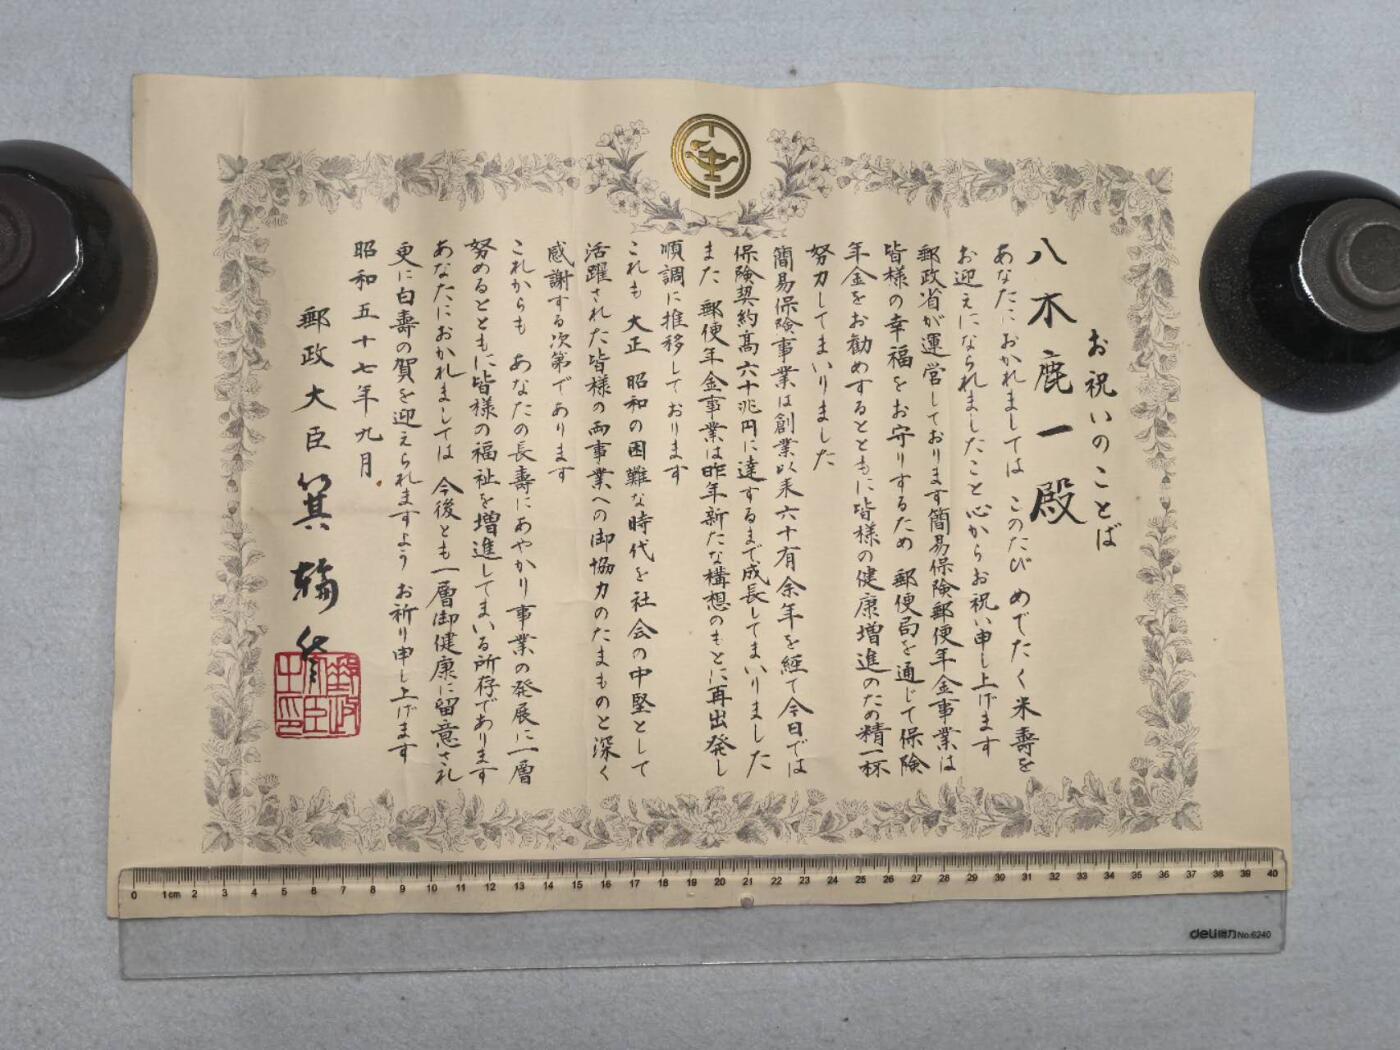 お祝いのことば
八木鹿一殿
あなたにおかれましては このたび めでたく米壽を
お迎えになられましたこと心からお祝い申し上げます
郵政省が運営しております簡易保険郵便年金事業は
皆様の幸福をお守りするため 郵便局を通じて保険
年金をお勧めするとともに皆様の健康増進のため精一杯
努力してまいりました
簡易保険事業は創業以来六十有余年を経て今日では
保険契約高六十兆円に達するまで成長してまいりました
また 郵便年金事業は昨年新たな構想のもとに再出発し
順調に推移しております
これも 大正 昭和の困難な時代を社会の中堅として
活躍された皆様の両事業への御協力のたまものと深く
感謝する次第であります
これからも あなたの長壽にあやかり事業の発展に一層
努めるとともに皆様の福祉を増進してまいる所存であります
あなたにおかれましては 今後とも一層御健康に留意され
更に白壽の賀を迎えられますよう お祈り申し上げます
昭和五十七年九月
郵政大臣 箕輪登
郵政
大臣
之印
0 1cm 2 3 4 5 6 7 8 9 10 11 12 13 14 15 16 17 18 19 20 21 22 23 24 25 26 27 28 29 30 31 32 33 34 35 36 37 38 39 40
deli得力 No.6240